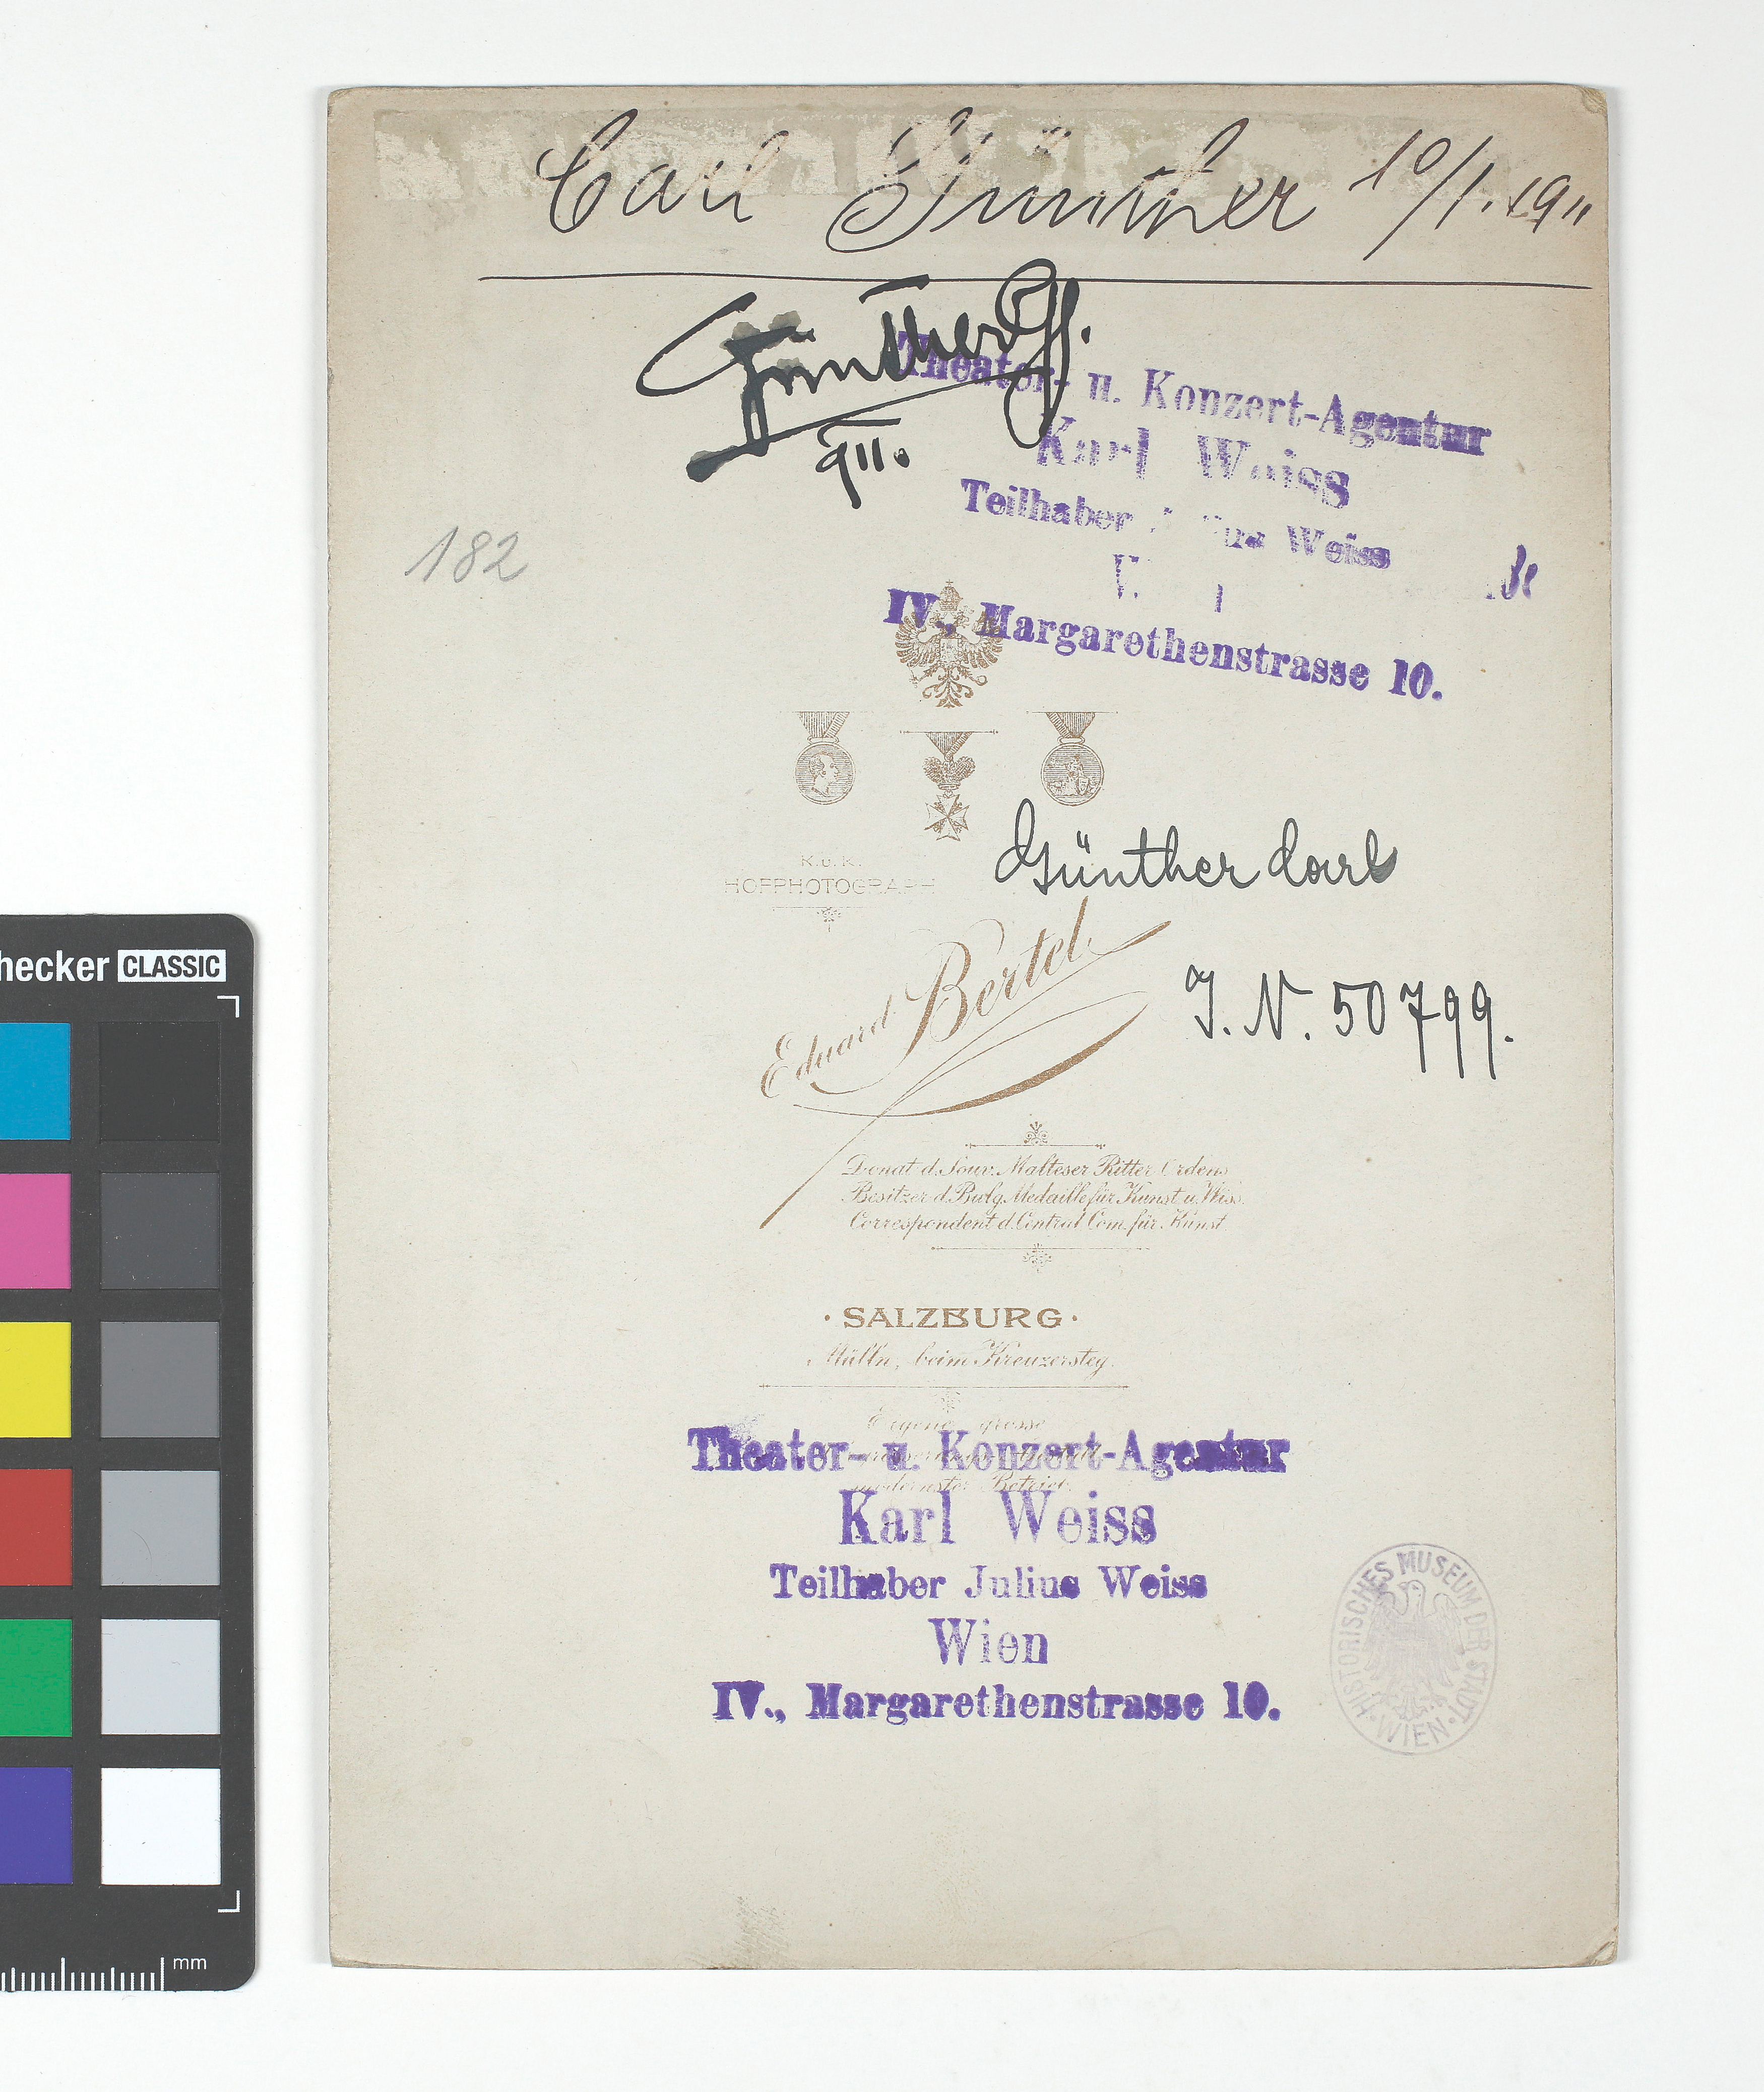 Carl Günther 10/1. 1911
Günther
911.
Theater- u. Konzert-Agentur
Karl Weiss
Teilhaber Weiss
IV., Margarethenstrasse 10.
182
K.u.K.
HOFPHOTOGRAPH
Günther Carl
Eduard Bertel
I. N. 50799.
Donat d. Souv. Malteser Ritter Ordens
Besitzer d. Medaille für Kunst u. Wiss.
Correspondent d. Central Com. für Kunst
· SALZBURG ·
Mülln, beim Kreuzersteg.
Eigene grosse
modernster Betrieb.
Theater- u. Konzert-Agentur
Karl Weiss
Teilhaber Julius Weiss
Wien
IV., Margarethenstrasse 10.
HISTORISCHES MUSEUM DER STADT · WIEN ·
hecker CLASSIC
mm